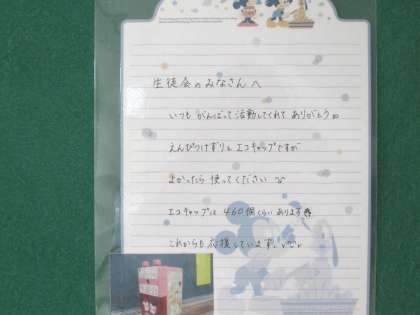 生徒会のみなさんへ
いつも がんばって活動してくれて ありがとう
えんぴつけずりと エコキャップですが
よかったら 使ってください
エコキャップは 460個くらいあります
これからも 応援しています。